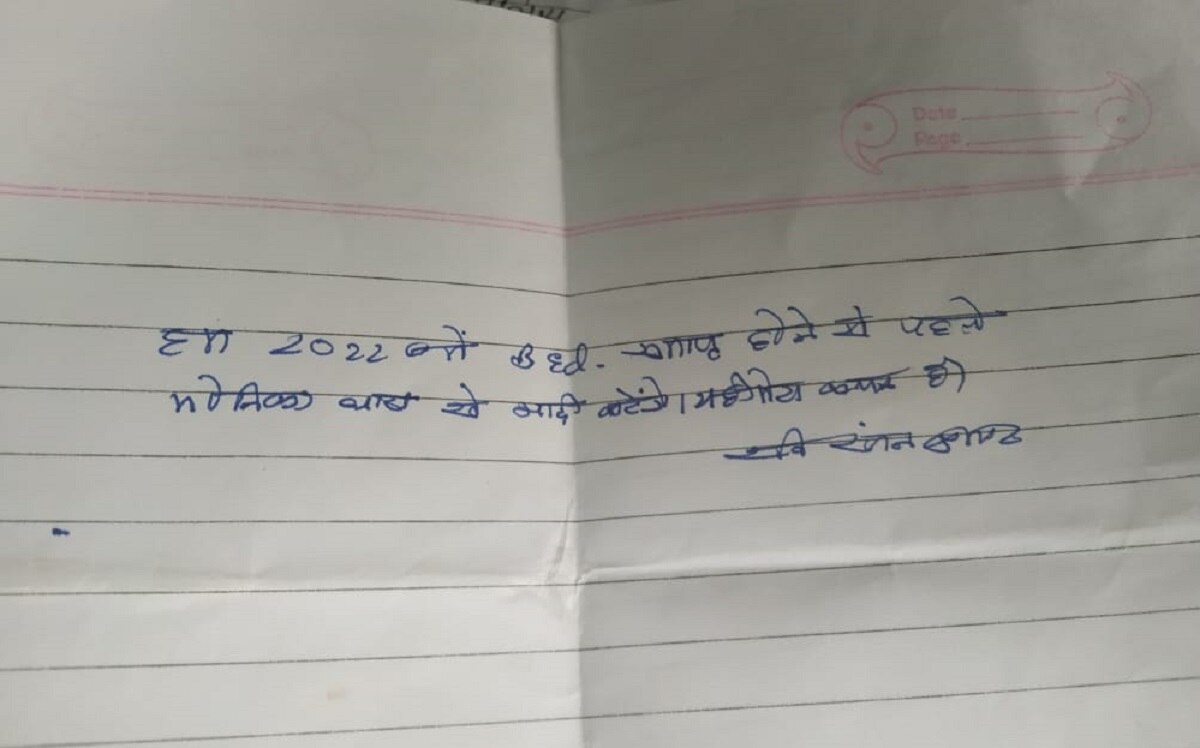 Date
Page
हम 2022 में B.Ed. समाप्त होने से पहले
से शादी करेंगे। यह मेरा कसम है।
रवि रंजन कुमार